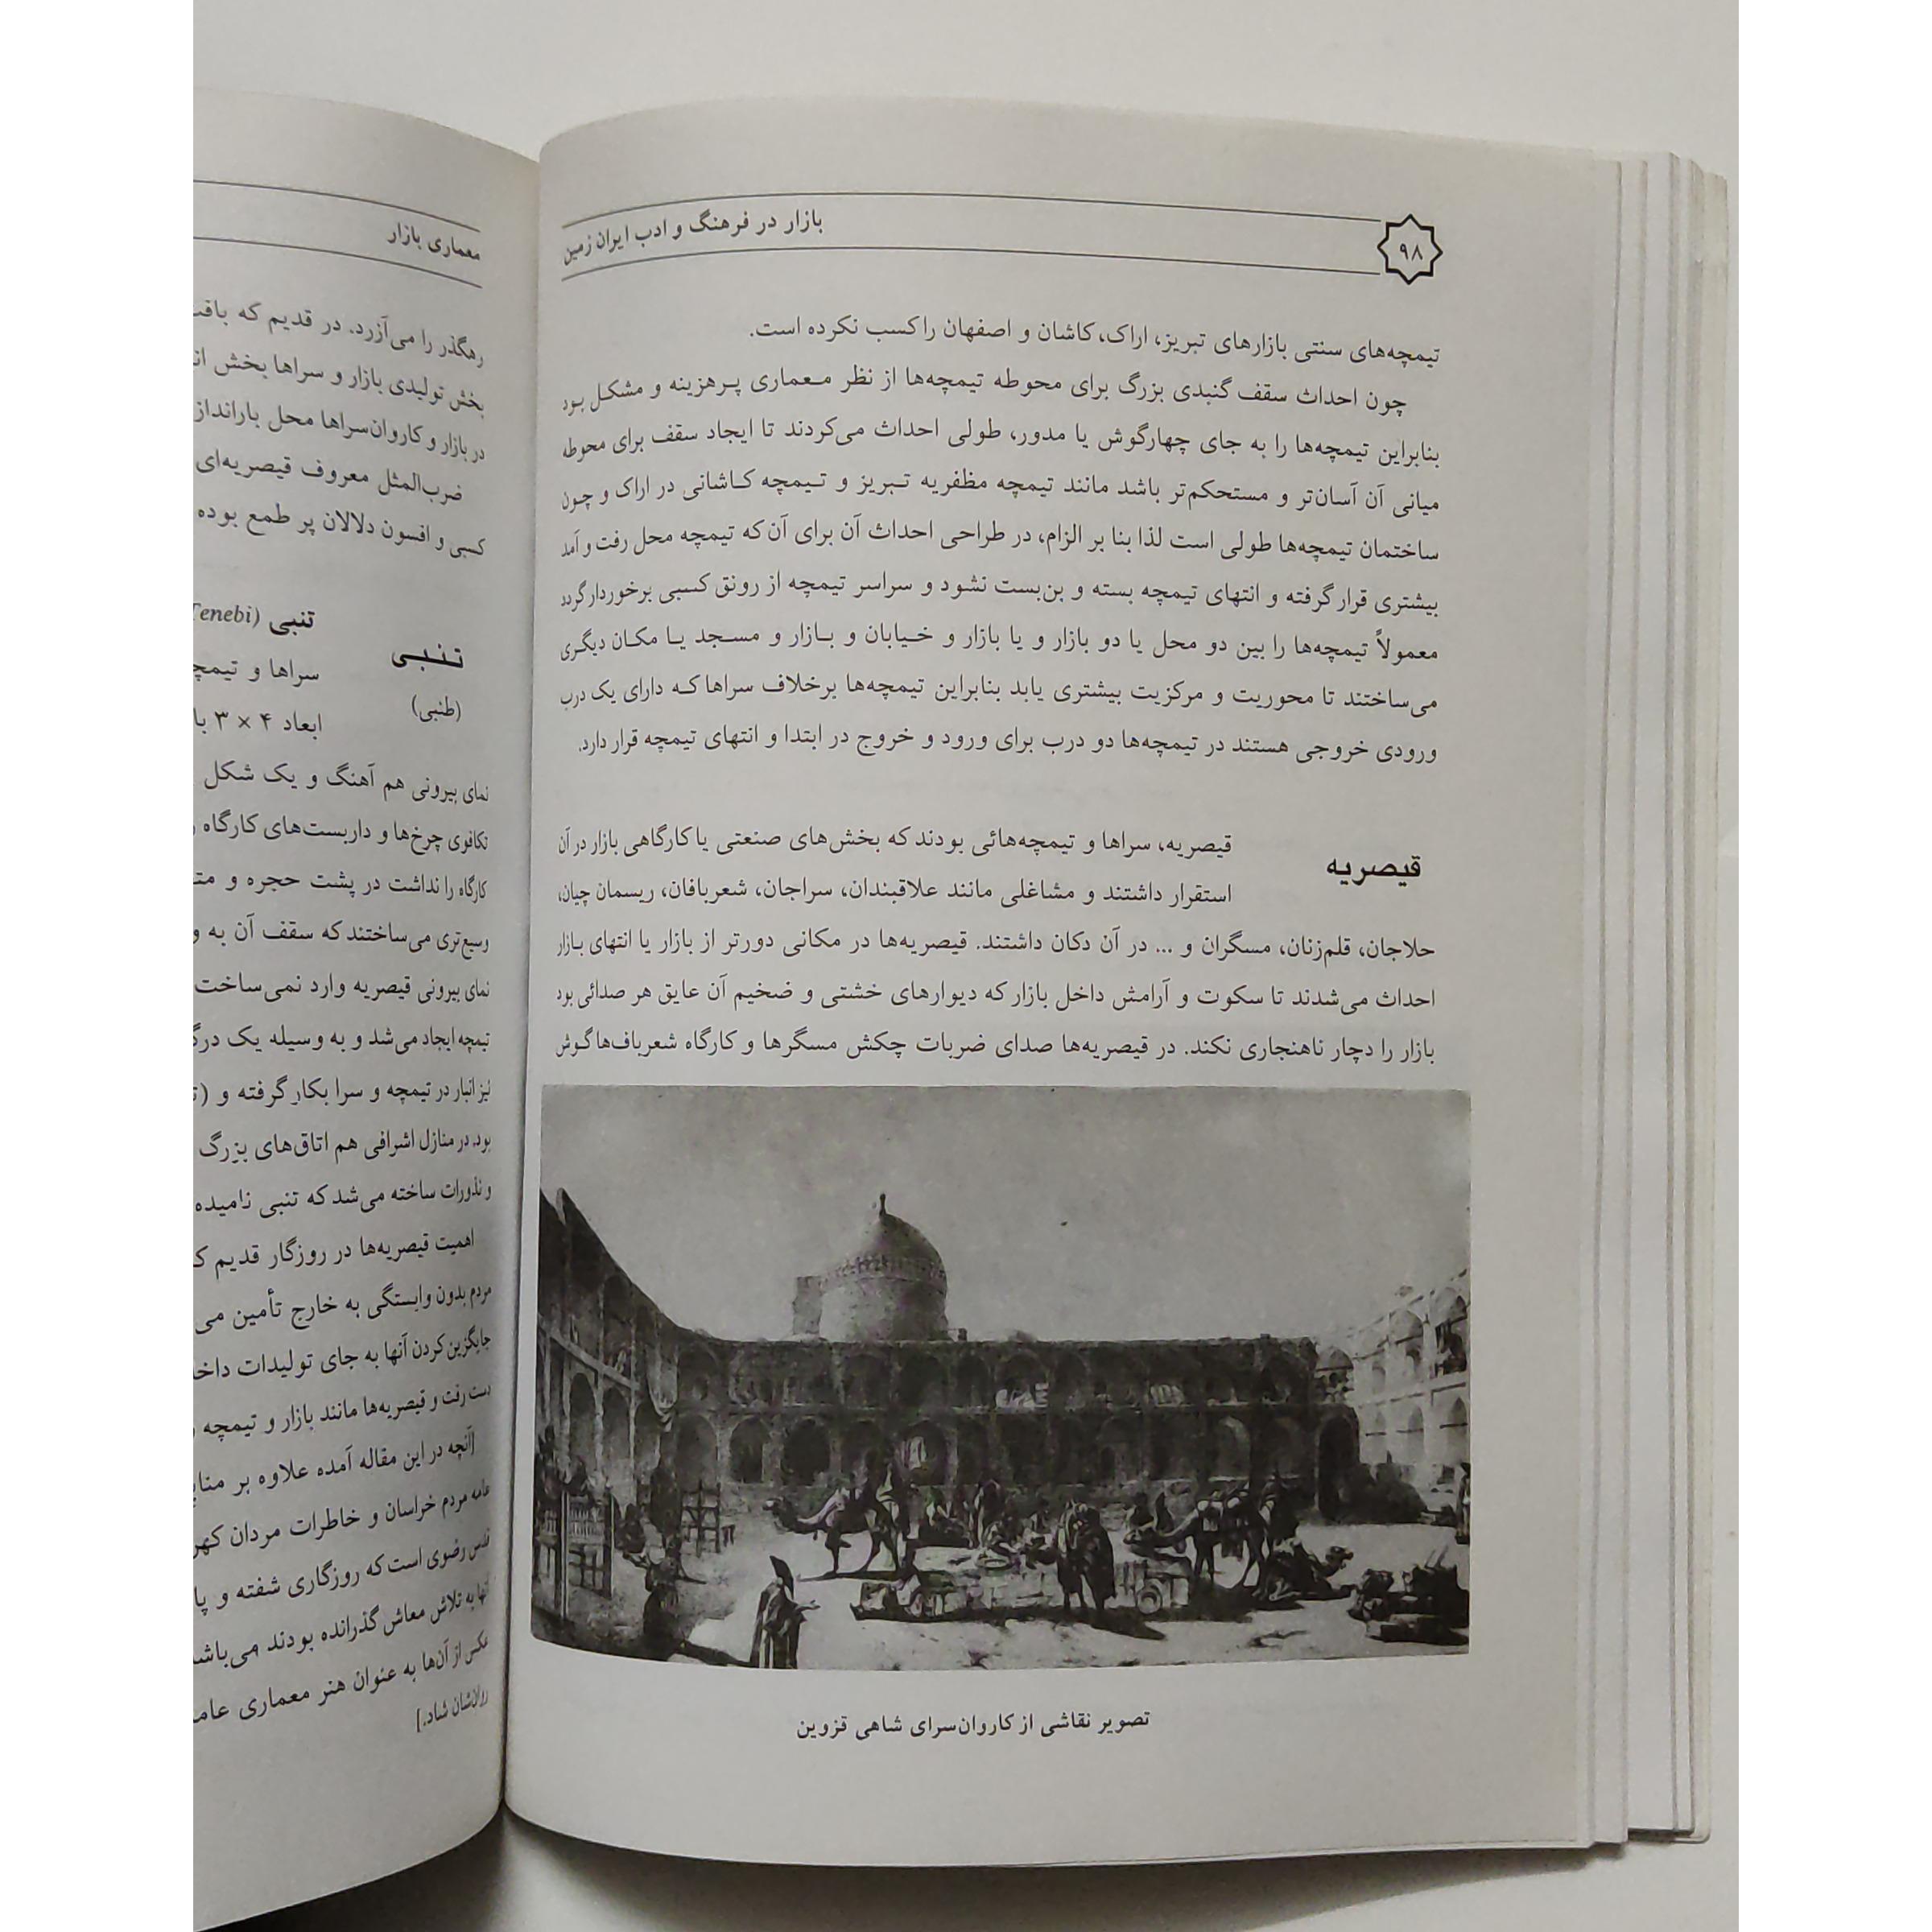 ۹۸
بازار در فرهنگ و ادب ایران زمین
تیمچه‌های سنتی بازارهای تبریز، اراک، کاشان و اصفهان را کسب نکرده است.
چون احداث سقف گنبدی بزرگ برای محوطه تیمچه‌ها از نظر معماری پرهزینه و مشکل بود
بنابراین تیمچه‌ها را به جای چهارگوش یا مدور، طولی احداث می‌کردند تا ایجاد سقف برای محوطه
میانی آن آسان‌تر و مستحکم‌تر باشد مانند تیمچه مظفریه تبریز و تیمچه کاشانی در اراک و چون
ساختمان تیمچه‌ها طولی است لذا بنا بر الزام، در طراحی احداث آن برای آن‌که تیمچه محل رفت و آمد
بیشتری قرار گرفته و انتهای تیمچه بسته و بن‌بست نشود و سراسر تیمچه از رونق کسبی برخوردار گردد
معمولاً تیمچه‌ها را بین دو محل یا دو بازار و یا بازار و خیابان و بازار و مسجد یا مکان دیگری
می‌ساختند تا محوریت و مرکزیت بیشتری یابد بنابراین تیمچه‌ها برخلاف سراها که دارای یک درب
ورودی خروجی هستند در تیمچه‌ها دو درب برای ورود و خروج در ابتدا و انتهای تیمچه قرار دارد.
قیصریه
قیصریه، سراها و تیمچه‌هائی بودند که بخش‌های صنعتی یا کارگاهی بازار در آن
استقرار داشتند و مشاغلی مانند علاقبندان، سراجان، شعربافان، ریسمان چیان،
حلاجان، قلم‌زنان، مسگران و ... در آن دکان داشتند. قیصریه‌ها در مکانی دورتر از بازار یا انتهای بازار
احداث می‌شدند تا سکوت و آرامش داخل بازار که دیوارهای خشتی و ضخیم آن عایق هر صدائی بود
بازار را دچار ناهنجاری نکند. در قیصریه‌ها صدای ضربات چکش مسگرها و کارگاه شعرباف‌ها گوش
تصویر نقاشی از کاروان‌سرای شاهی قزوین
معماری بازار
رهگذر را می‌آزرد. در قدیم که
بخش تولیدی بازار و سراها بخش
در بازار و کاروان‌سراها محل بارانداز
ضرب‌المثل معروف قیصریه‌ای
کسبی و افسون دلالان پر طمع بوده
تنبی
(طنبی)
تنبی (Tenebi
سراها و
ابعاد ۴ × ۳
نمای بیرونی هم آهنگ و یک شکل
تکافوی چرخ‌ها و داربست‌های کارگاه
کارگاه را نداشت در پشت حجره و
وسیع‌تری می‌ساختند که سقف آن به
نمای بیرونی قیصریه وارد نمی‌ساخت
تیمچه ایجاد می‌شد و به وسیله یک
نیز انبار در تیمچه و سرا بکار گرفته و
بود. در منازل اشرافی هم اتاق‌های بزرگ
و نذورات ساخته می‌شد که تنبی نامیده
اهمیت قیصریه‌ها در روزگار قدیم
مردم بدون وابستگی به خارج تأمین می
جایگزین کردن آنها به جای تولیدات
دست رفت و قیصریه‌ها مانند بازار و تیمچه
[آنچه در این مقاله آمده علاوه بر
عامه مردم خراسان و خاطرات مردان
قدس رضوی است که روزگاری شفته و
آنها به تلاش معاش گذرانده بودند
عکس از آن‌ها به عنوان هنر معماری
روان‌شان شاد.]